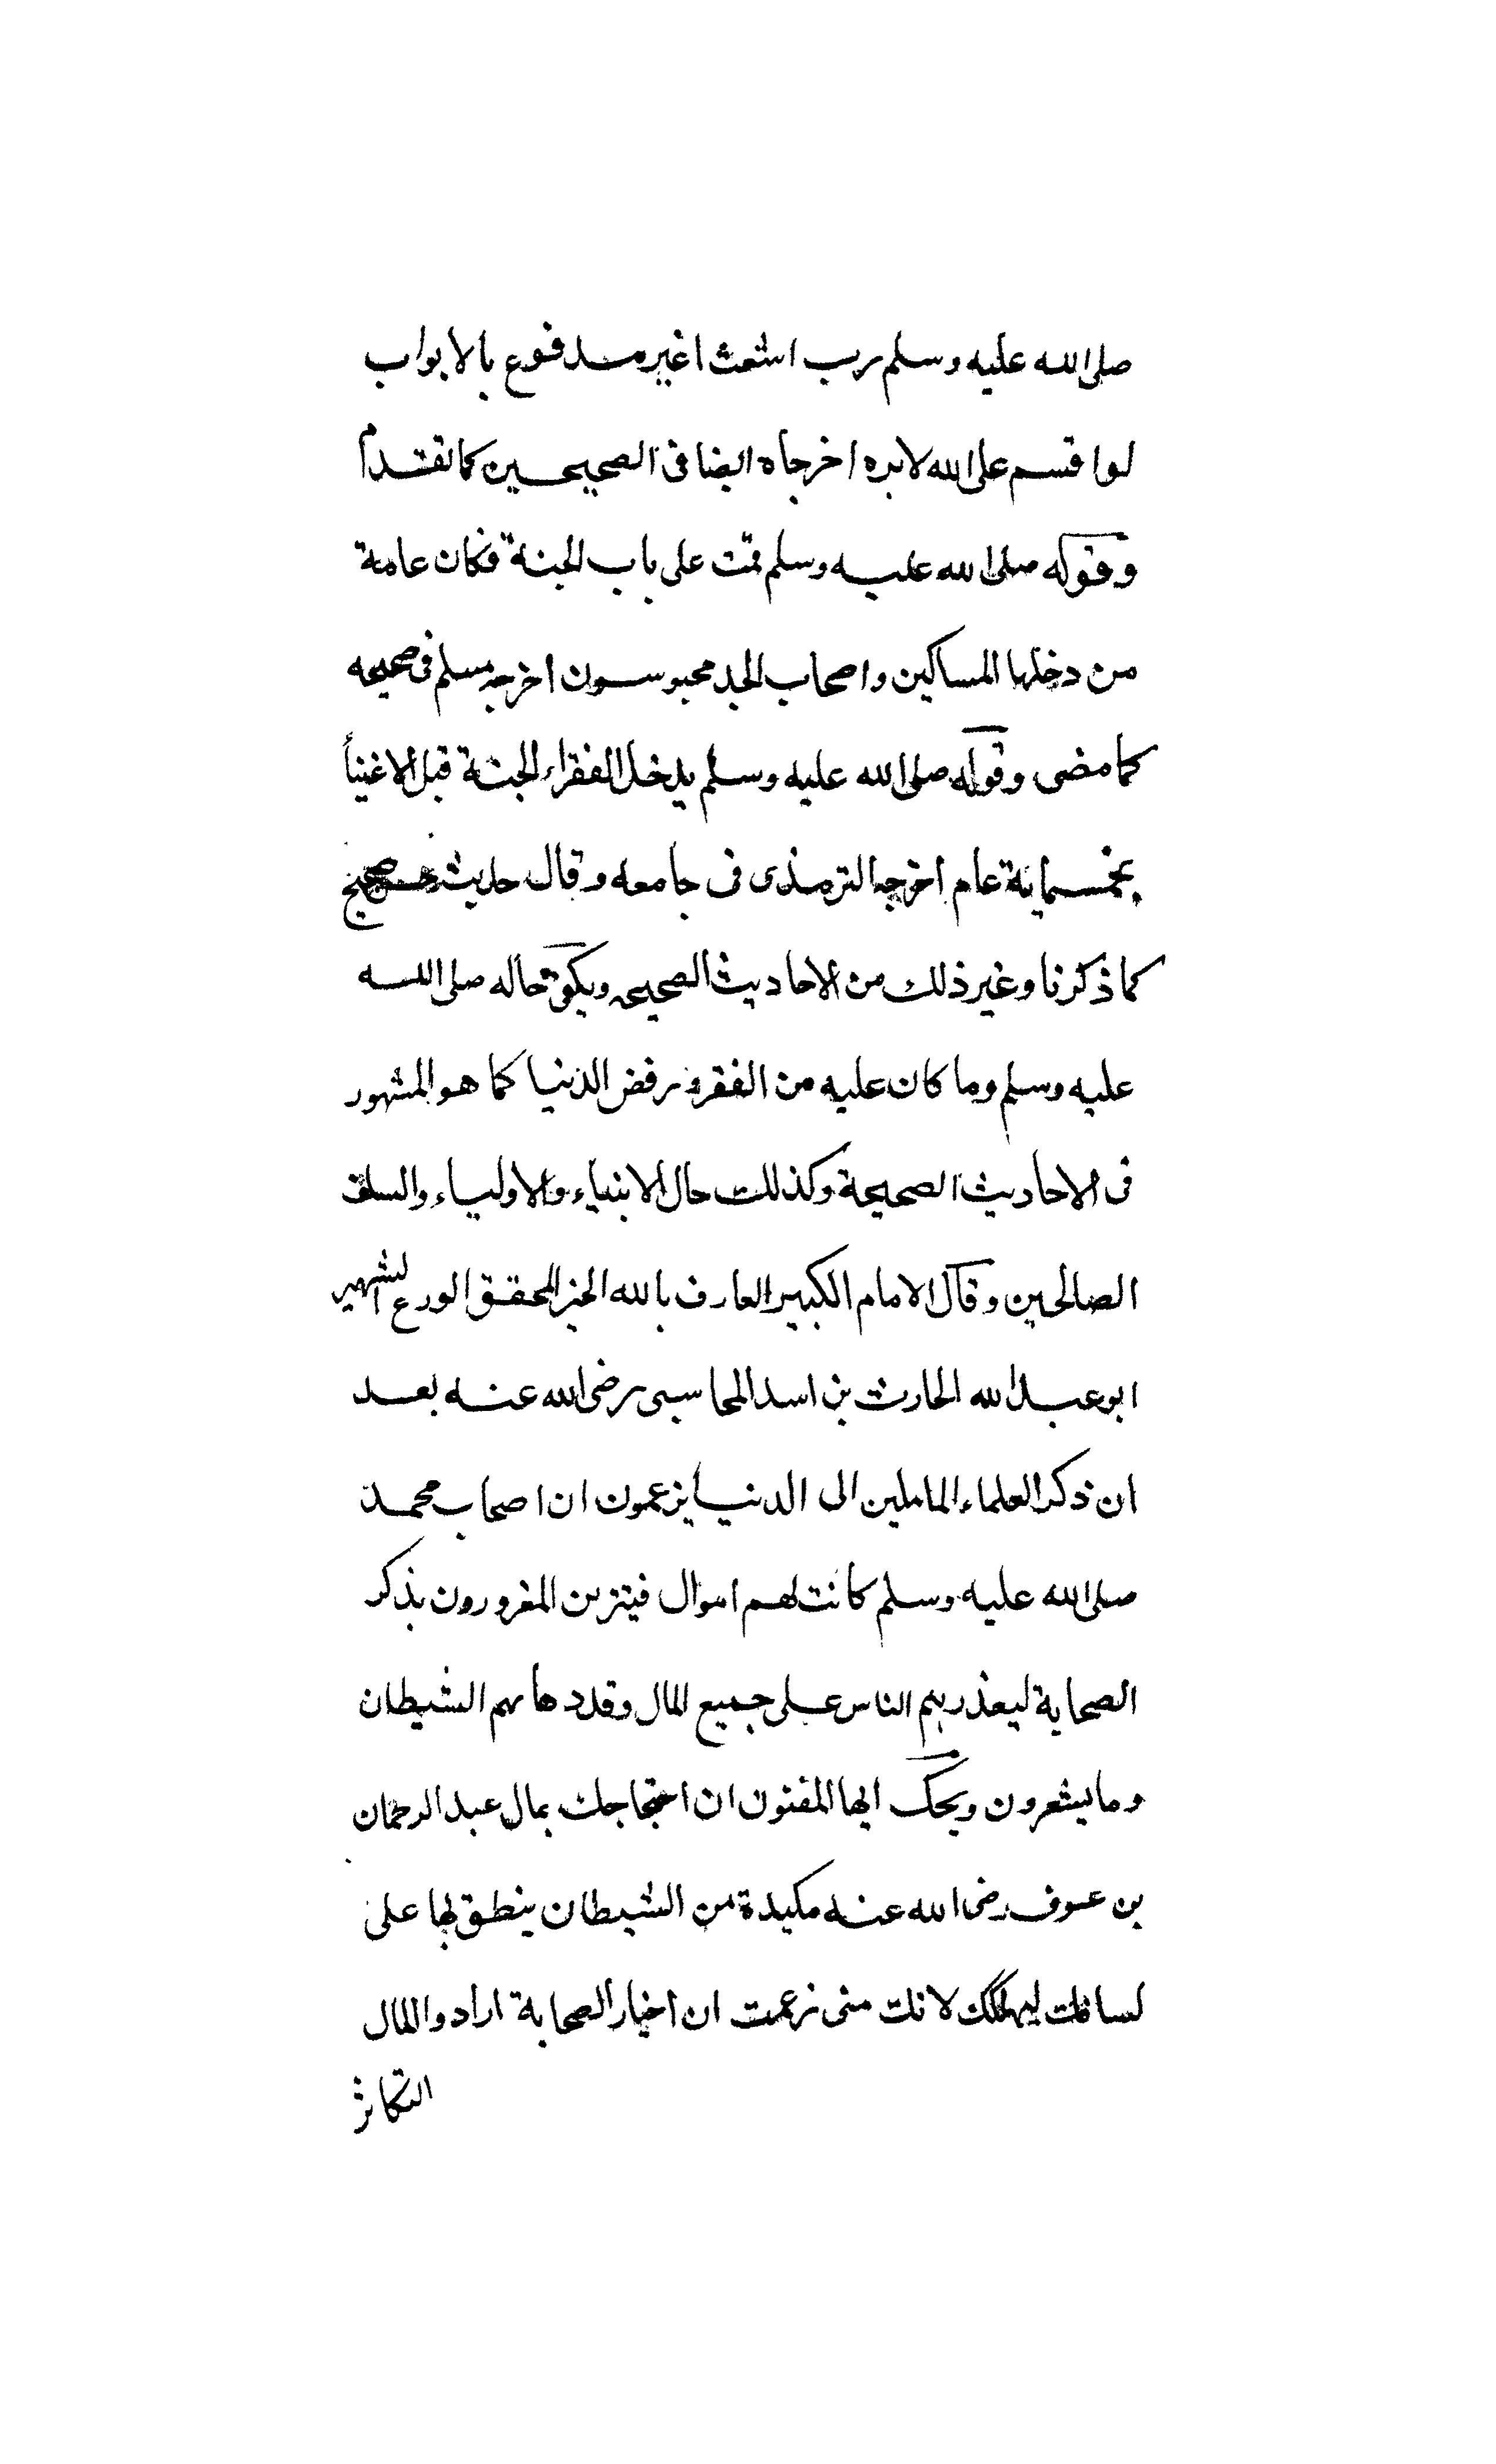 صلى الله عليه وسلم رب اشعث اغبر مدفوع بالابواب
لو اقسم على الله لابره اخرجاه ايضا فى الصحيحين كما تقدم
وقوله صلى الله عليه وسلم قمت على باب الجنة فكان عامة
من دخلها المساكين واصحاب الجد محبوسون اخرجه مسلم فى صحيحه
كما مضى وقوله صلى الله عليه وسلم يدخل الفقراء الجنة قبل الاغنيأ
بخمسماية عام اخرجه الترمذى فى جامعه وقال حديث صحيح
كما ذكرنا وغير ذلك من الاحاديث الصحيحه ويكفى حاله صلى الله
عليه وسلم وما كان عليه من الفقر ورفض الدنيا كما هو المشهور
فى الاحاديث الصحيحة وكذلك حال الانبياء والاولياء والسلف
الصالحين وقال الامام الكبير العارف بالله الخبر المحقق الورع الشهير
ابو عبد الله الحارث بن اسد المحاسبى رضى الله عنه بعد
ان ذكر العلماء المايلين الى الدنيا يزعمون ان اصحاب محمد
صلى الله عليه وسلم كانت لهم اموال فيتزين المغرورون بذكر
الصحابة ليعذرهم الناس على جميع المال وقد دهاهم الشيطان
وما يشعرون ويحك ايها المفتون ان احتجاجك بمال عبد الرحمان
بن عوف رضى الله عنه مكيدة من الشيطان ينطق بها على
لسانك ليهلكك لانك متى زعمت ان اخيار الصحابة ارادوا المال
التكاثر